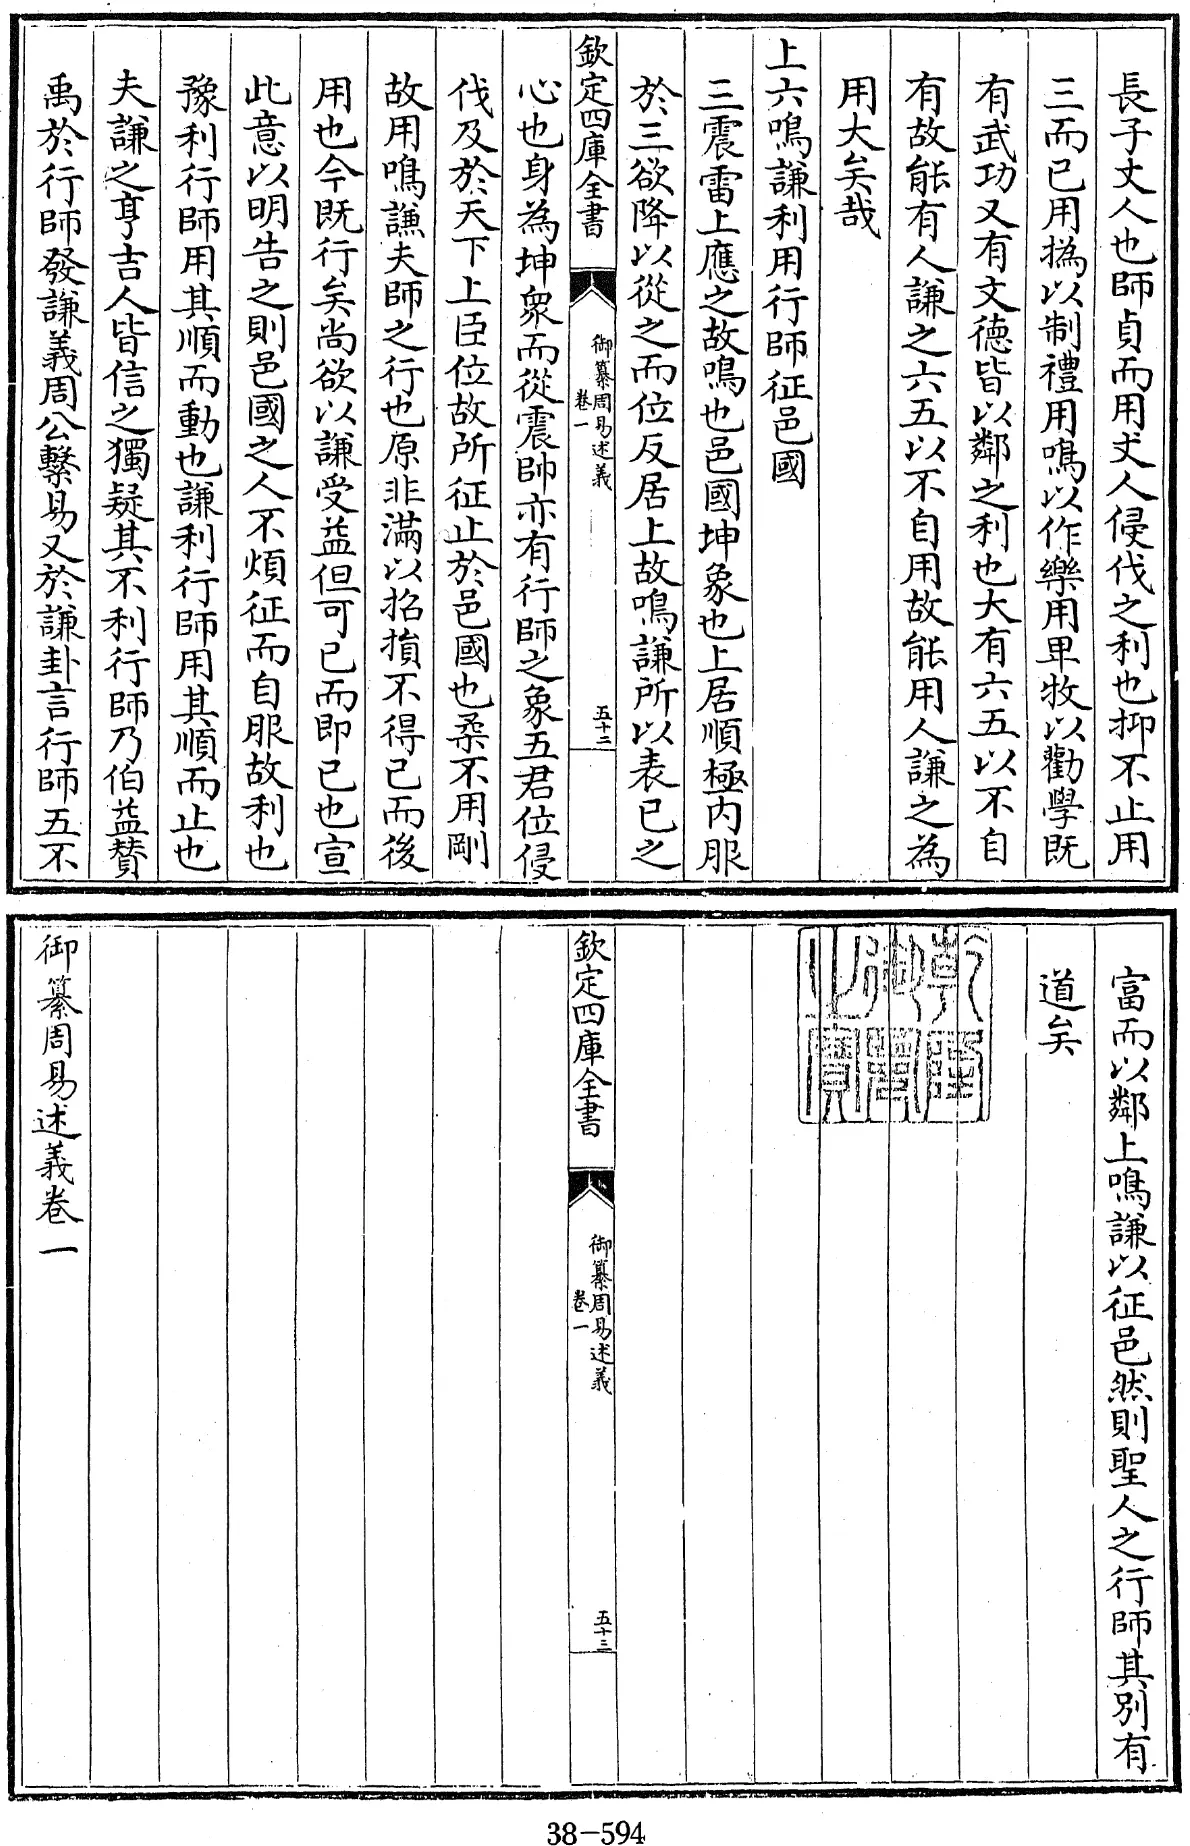 長子丈人也師貞而用丈人侵伐之利也抑不止用
三而已用撝以制禮用鳴以作樂用卑牧以勸學既
有武功又有文德皆以鄰之利也大有六五以不自
有故能有人謙之六五以不自用故能用人謙之為
用大矣哉
上六鳴謙利用行師征邑國
三震雷上應之故鳴也邑國坤象也上居順極內服
於三欲降以從之而位反居上故鳴謙所以表已之
欽定四庫全書
御纂周易述義
卷一
五十二
心也身為坤衆而從震帥亦有行師之象五君位侵
伐及於天下上臣位故所征止於邑國也柔不用剛
故用鳴謙夫師之行也原非滿以招損不得已而後
用也今既行矣尚欲以謙受益但可已而即已也宣
此意以明告之則邑國之人不煩征而自服故利也
豫利行師用其順而動也謙利行師用其順而止也
夫謙之亨吉人皆信之獨疑其不利行師乃伯益贊
禹於行師發謙義周公繫易又於謙卦言行師五不
富而以鄰上鳴謙以征邑然則聖人之行師其別有
道矣
乾隆御覽之寶
欽定四庫全書
御纂周易述義
卷一
五十三
御纂周易述義卷一
38-594